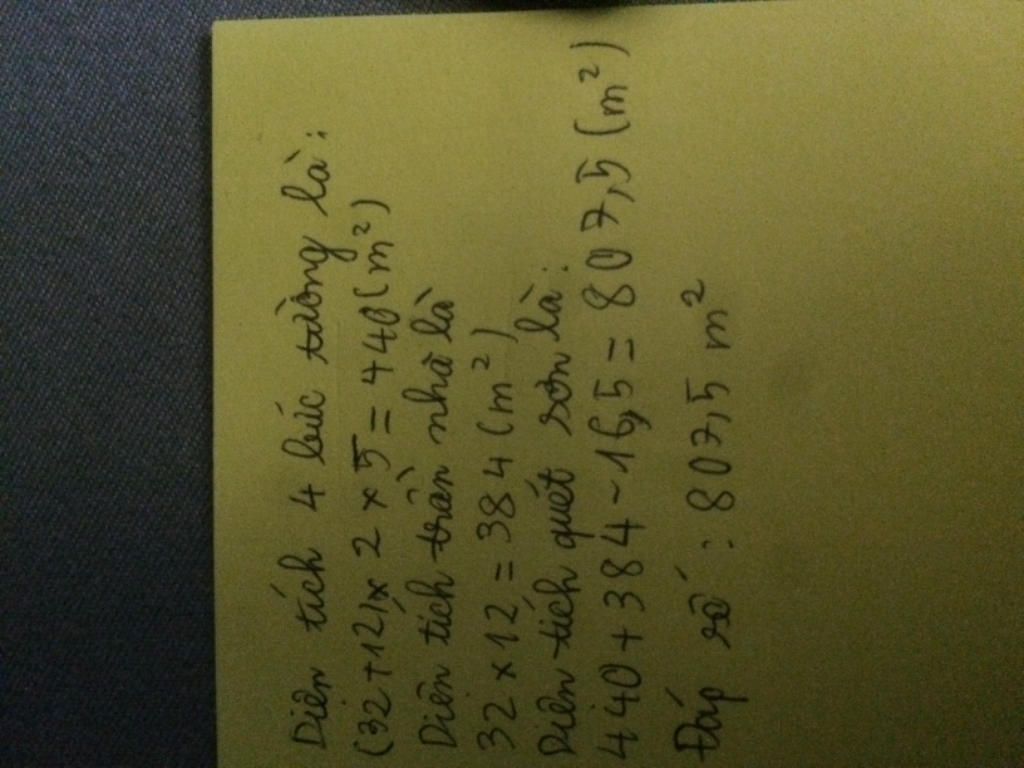 Diện tích 4 bức tường là:
(32+12)x 2 x 5 = 440(m²)
Diện tích trần nhà là
32 x 12 = 384 (m²)
Diện tích quét sơn là:
440+384-16,5=807,5(m²)
Đáp số : 807,5 m²